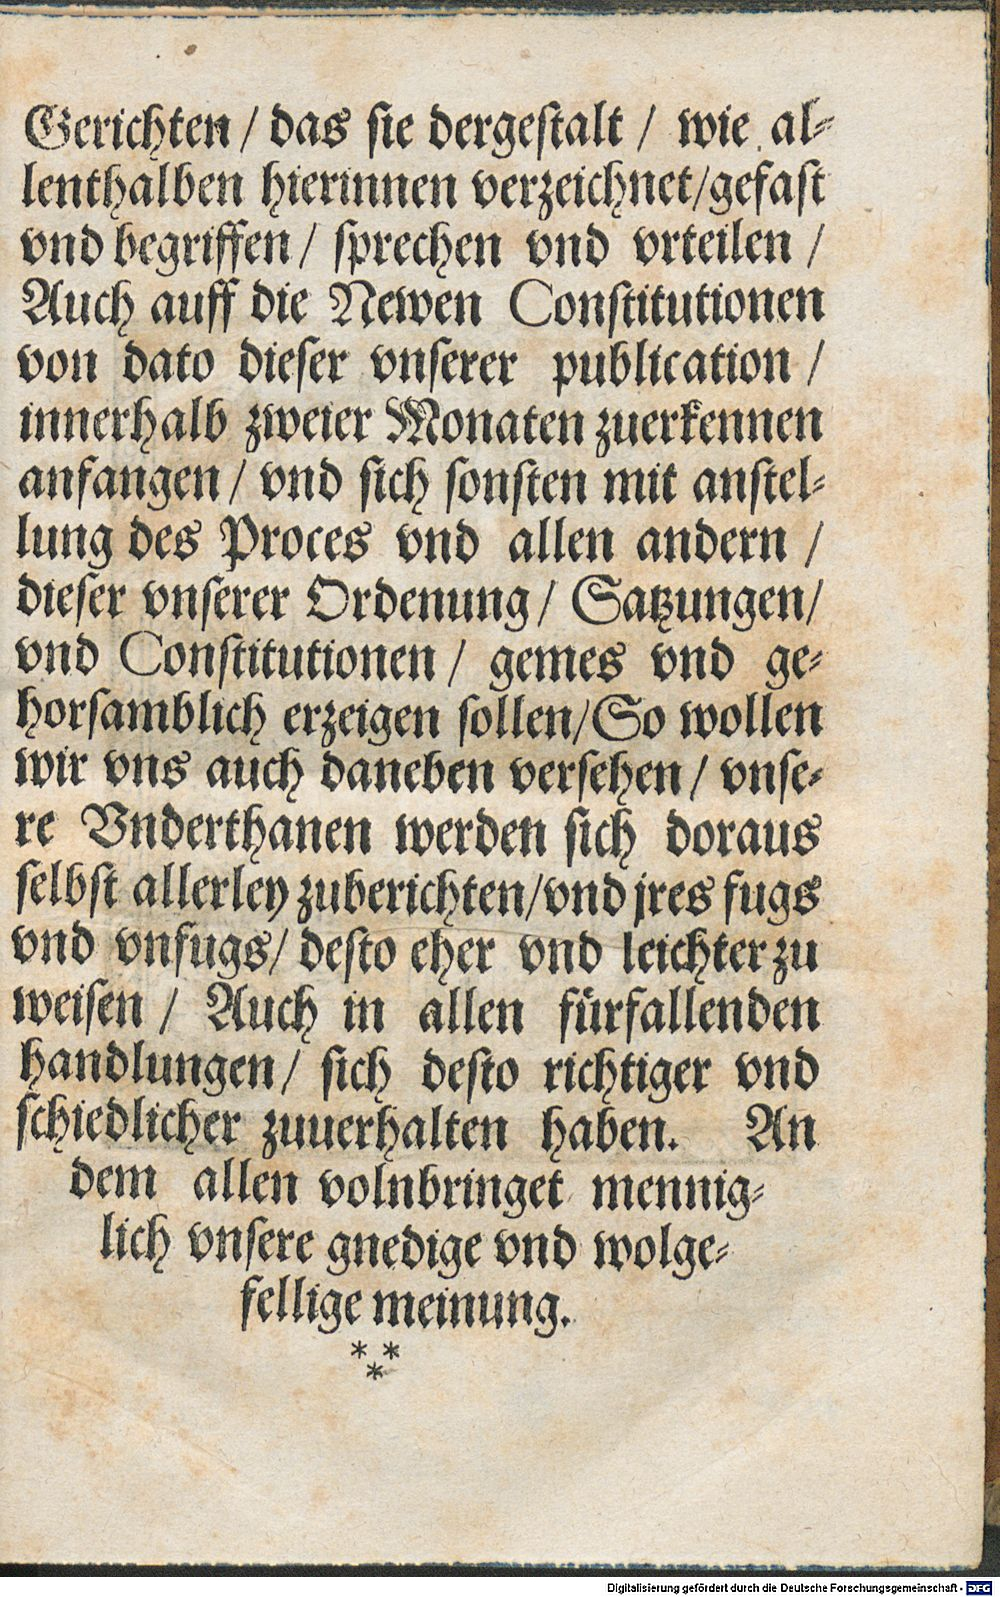 Gerichten / das sie dergestalt / wie al-
lenthalben hierinnen verzeichnet/gefast
vnd begriffen / sprechen vnd vrteilen /
Auch auff die Newen Constitutionen
von dato dieser vnserer publication /
innerhalb zweier Monaten zuerkennen
anfangen / vnd sich sonsten mit anstel-
lung des Proces vnd allen andern /
dieser vnserer Ordenung / Satzungen/
vnd Constitutionen / gemes vnd ge-
horsamblich erzeigen sollen/So wollen
wir vns auch daneben versehen / vnse-
re Vnderthanen werden sich doraus
selbst allerley zuberichten/vnd jres fugs
vnd vnfugs/ desto eher vnd leichter zu
weisen / Auch in allen fürfallenden
handlungen/ sich desto richtiger vnd
schiedlicher zuuerhalten haben. An
dem allen volnbringet mennig-
lich vnsere gnedige vnd wolge-
fellige meinung.
* *
*
Digitalisierung gefördert durch die Deutsche Forschungsgemeinschaft - DFG